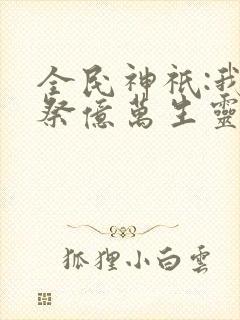 全民神祇:我
祭億萬生靈
狐狸小白雲